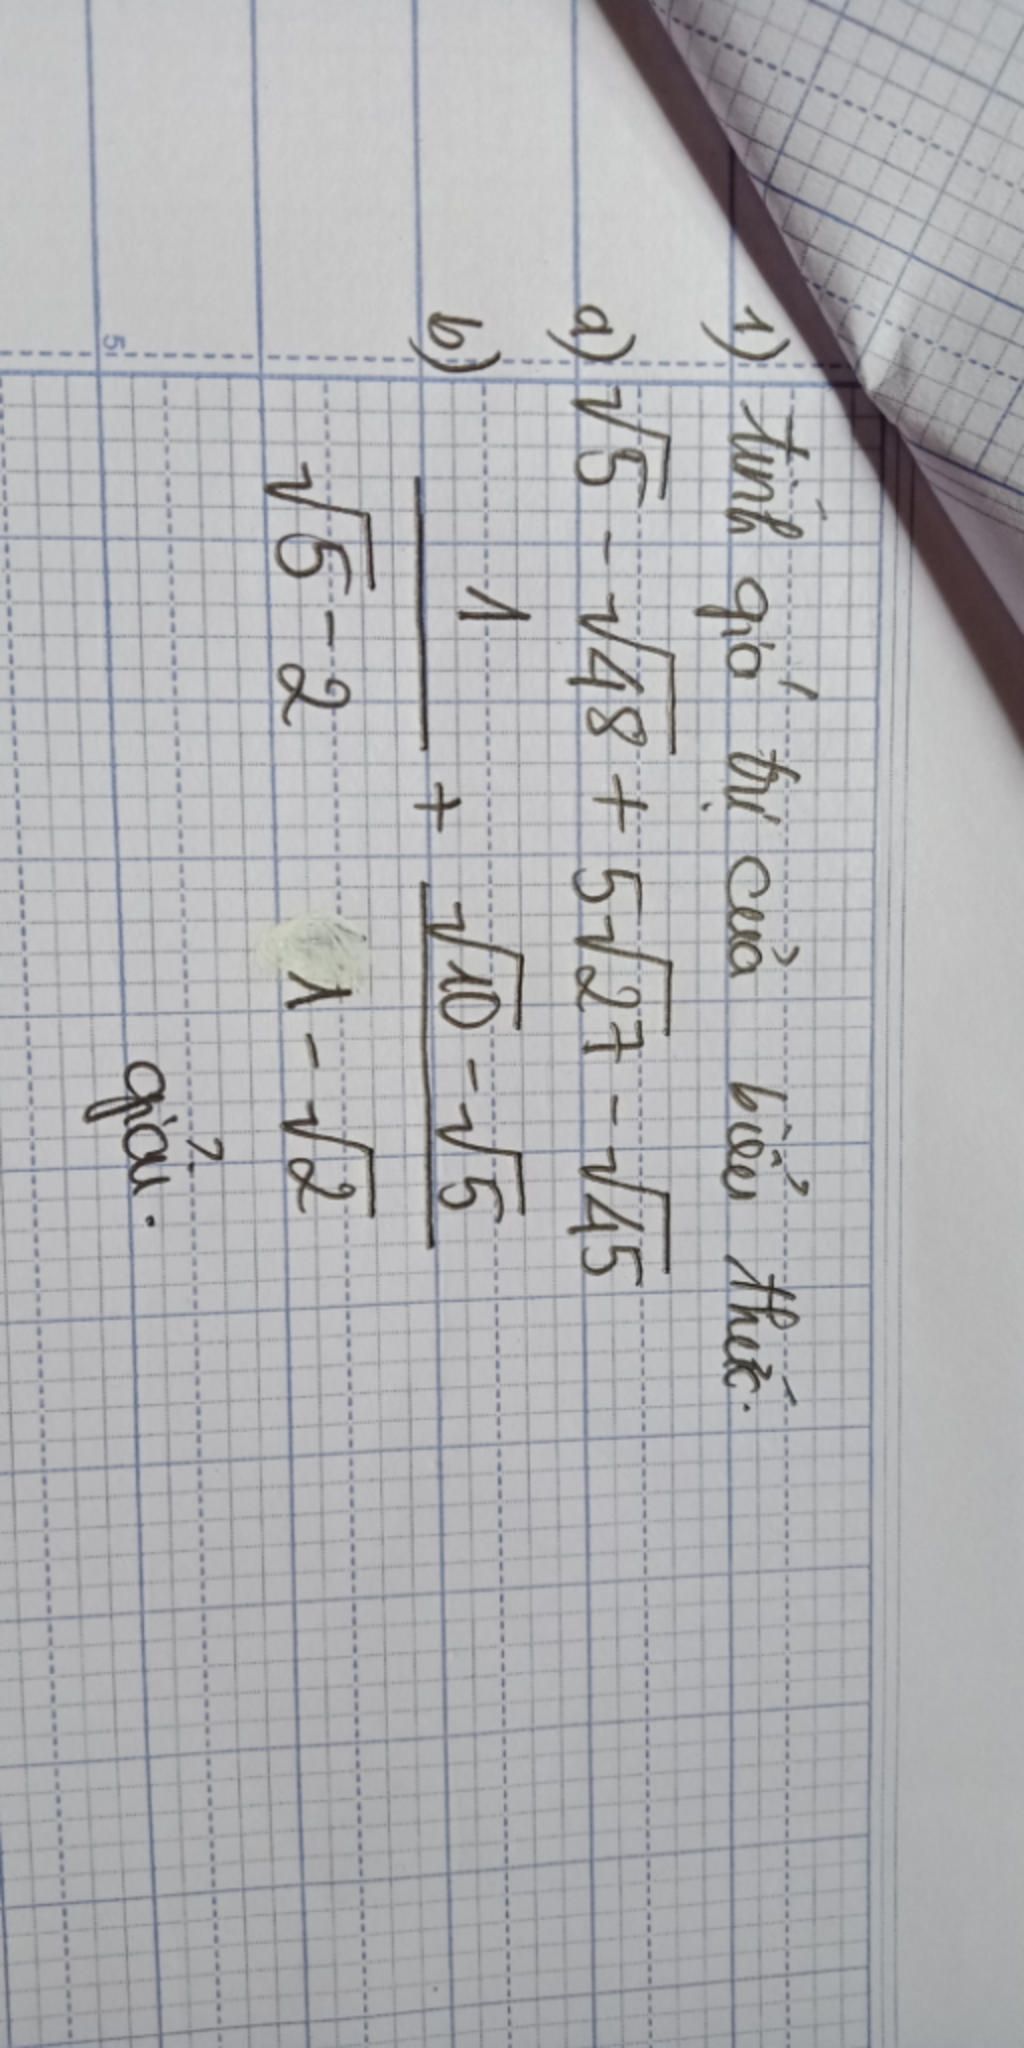 1) tính giá trị của biểu thức.
a) √5 - √48 + 5√27 - √45
b) 1/(√5 - 2) + (√10 - √5)/(1 - √2)
giải.
5